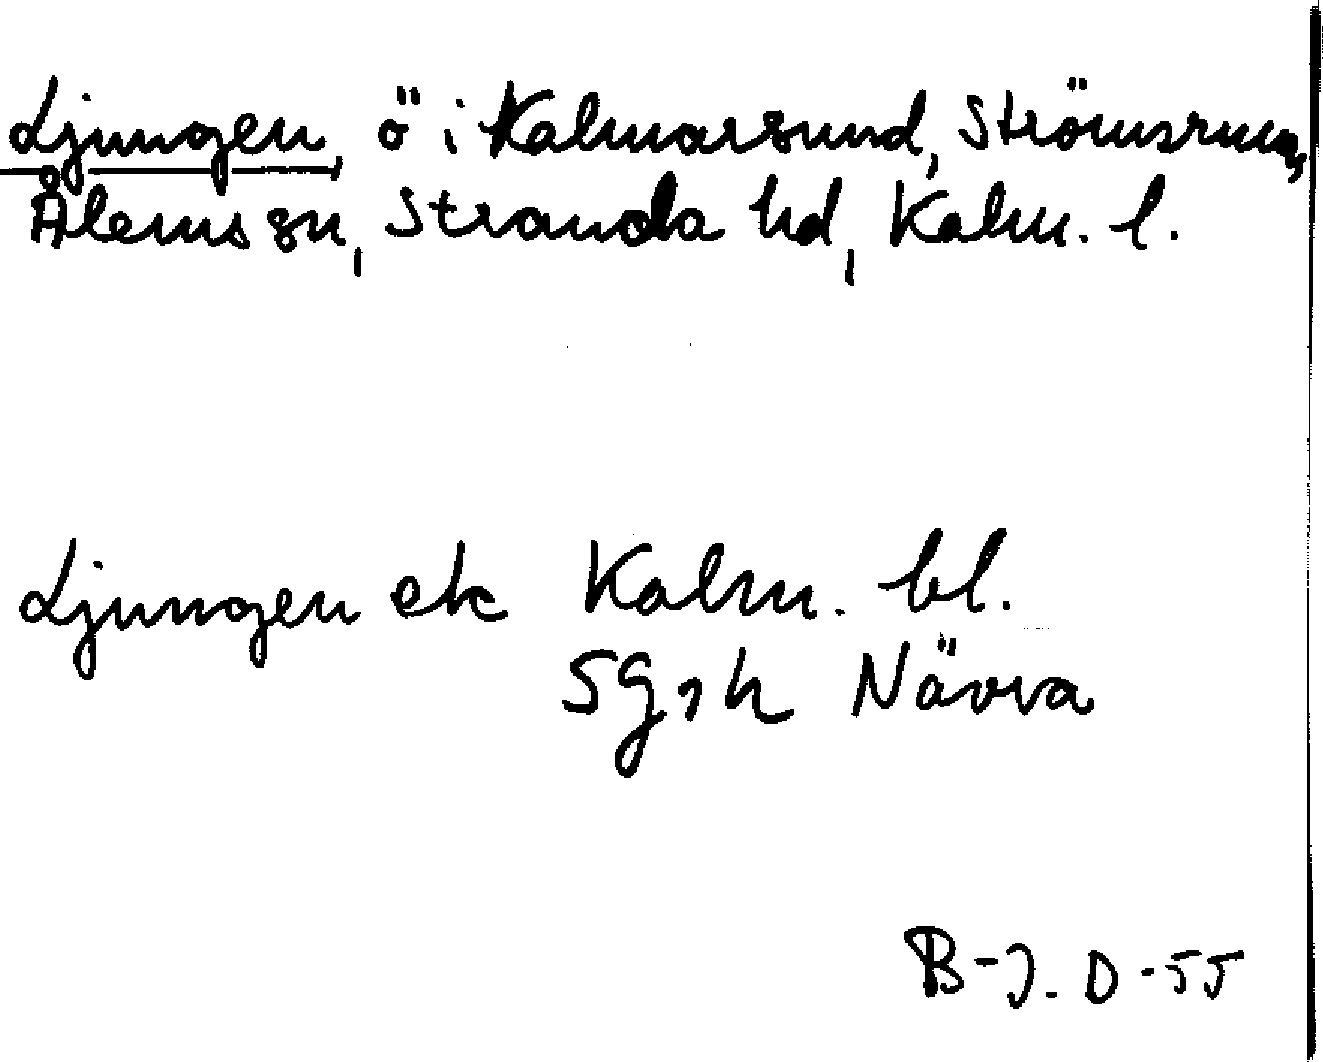 Ljungen, ö i Kalmarsund, Strömsrum,
Ålems sn, Stranda hd, Kalm. l.
Ljungen ek Kalm. bl.
SG, h Nävra
B-J. D -55